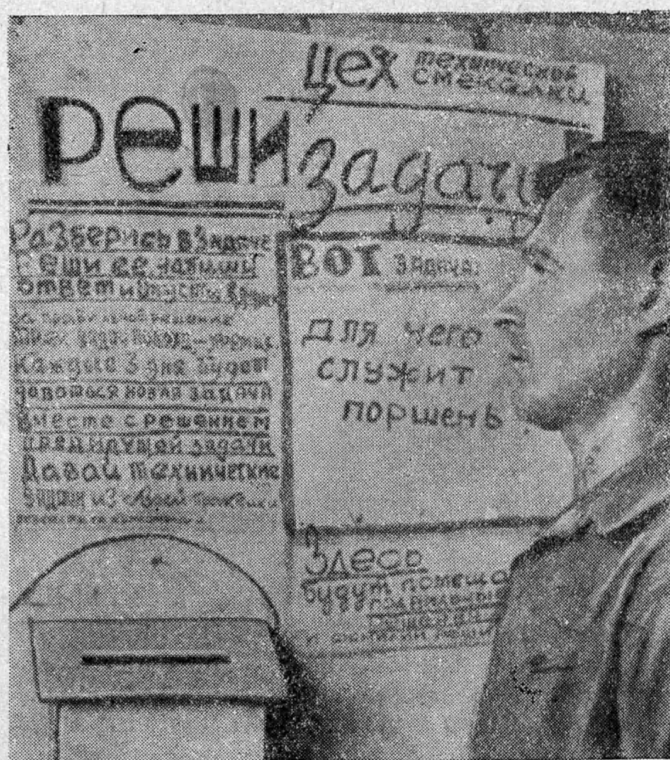 Цех технической
смекалки
РЕШИ задачу
Разберись в задаче
Реши ее напиши
ответ и опусти в
за правильное решение
Каждые 3 дня будет
даваться новая задача
вместе с решением
предыдущей задачи
Давай технические
задачи из своей практики
ВОТ задача:
для чего
служит
поршень
Здесь
будут помеща
правильные
решения
и фамилии